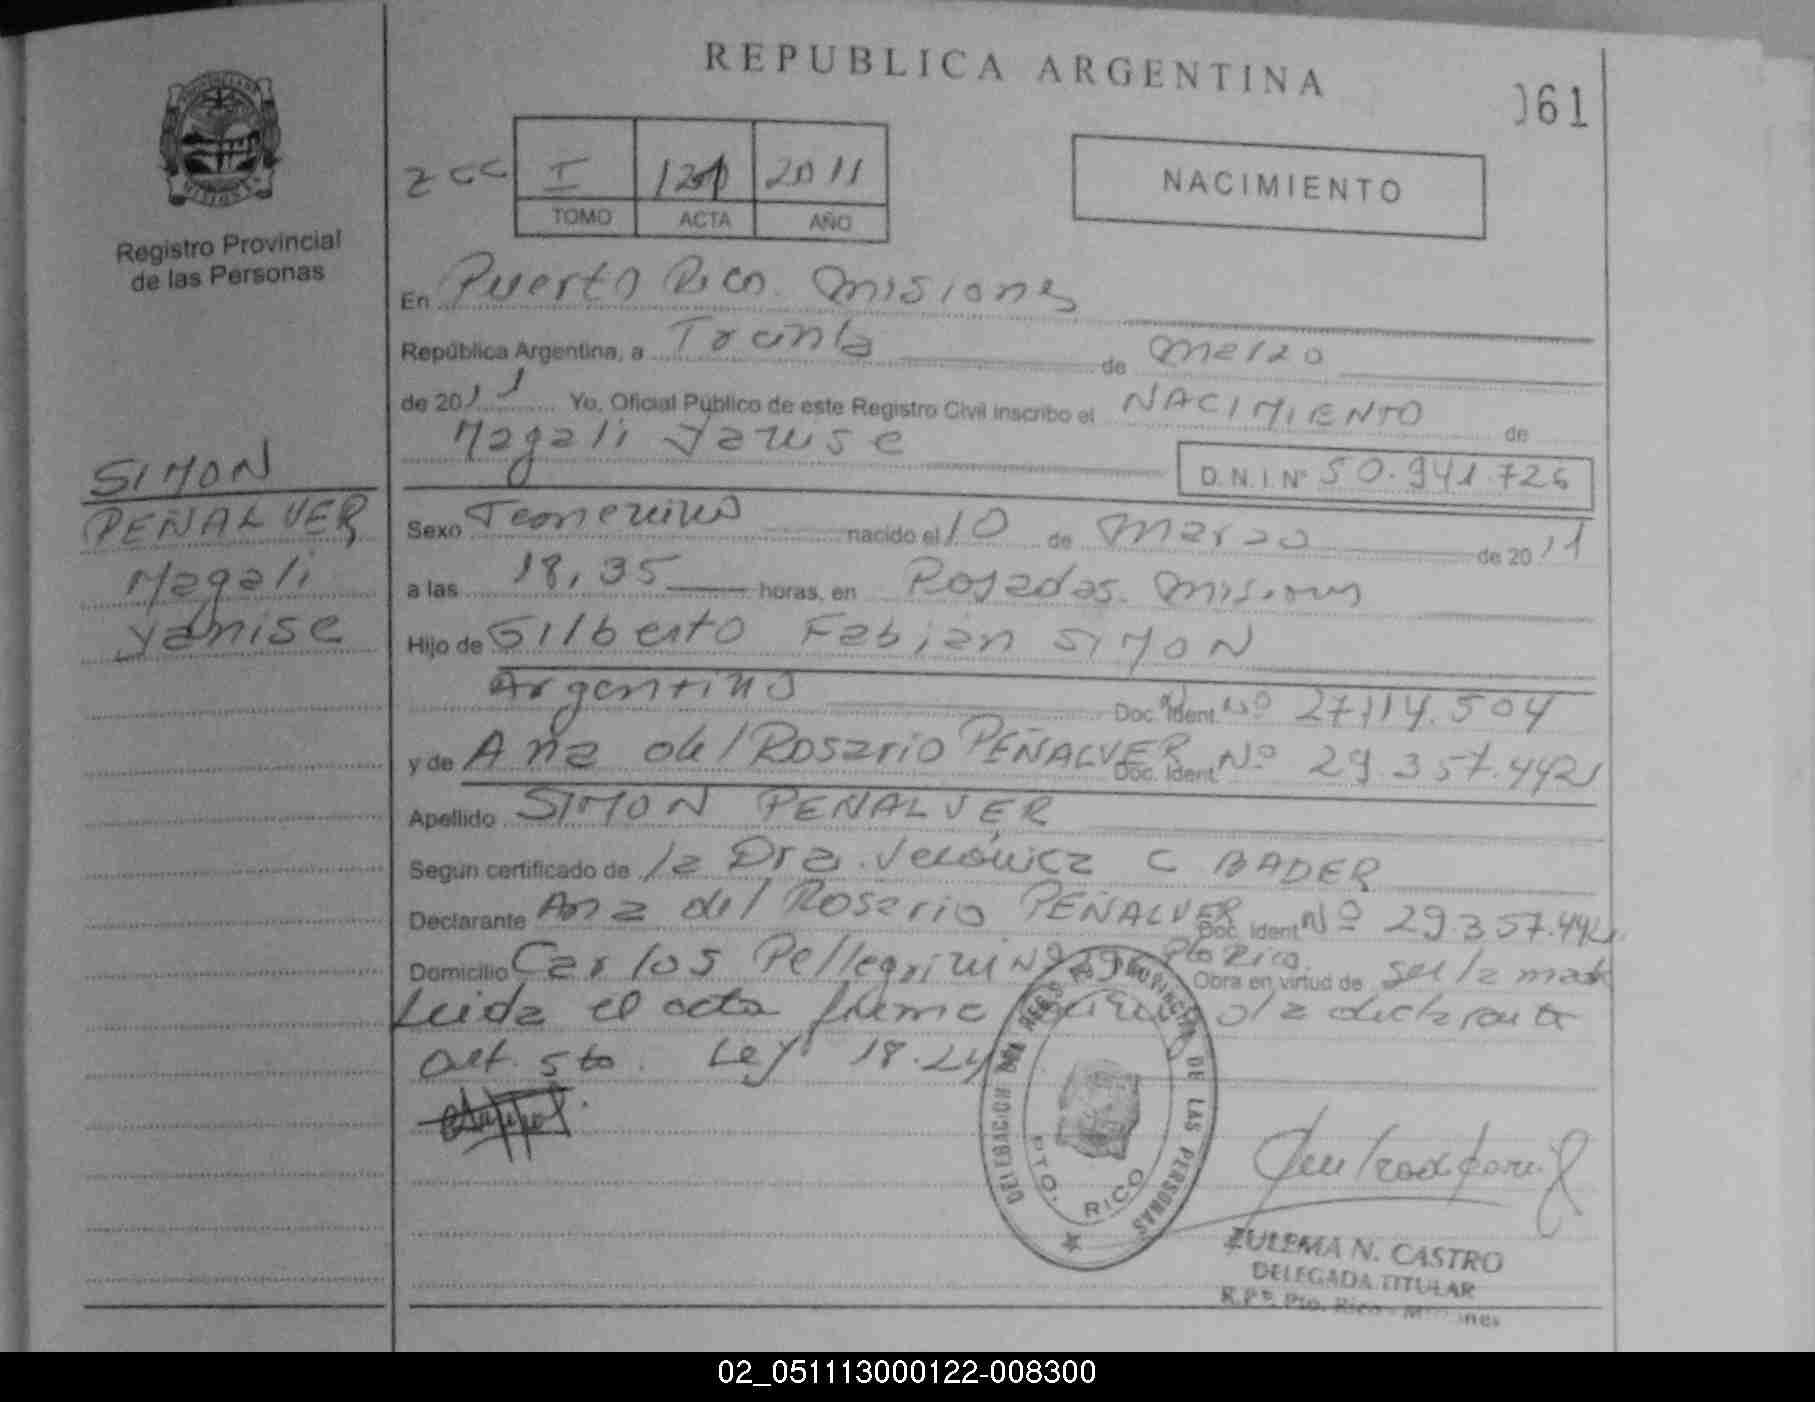 REPUBLICA ARGENTINA
061
I 2011
TOMO ACTA AÑO
NACIMIENTO
Registro Provincial
de las Personas
En Puerto Rico. Misiones
República Argentina, a Treinta de Marzo
de 2011 Yo, Oficial Público de este Registro Civil inscribo el NACIMIENTO de
Magali Yanise
D.N.I. Nº 50.941.726
SIMON
PEÑALVER
Magali
Yanise
Sexo Femenino nacido el 10 de Marzo de 2011
a las 18,35 horas, en Posadas. Misiones
Hijo de Gilberto Fabián SIMON
Argentino Doc. Ident. Nº 27.114.504
y de Ana del Rosario PEÑALVER Doc. Ident. Nº 29.357.442
Apellido SIMON PEÑALVER
Según certificado de la Dra. Verónica C BADER
Declarante Ana del Rosario PEÑALVER Doc. Ident. Nº 29.357.442
Domicilio Carlos Pellegrini Nº Pto Rico. Obra en virtud de ser la madre
Leida el acta firma la declarante
Art. 5to. Ley 18.24
DELEGACION DEL REGISTRO PROVINCIAL DE LAS PERSONAS
PTO. RICO
ZULEMA N. CASTRO
DELEGADA TITULAR
R.P.P. Pto. Rico - Misiones
02_051113000122-008300